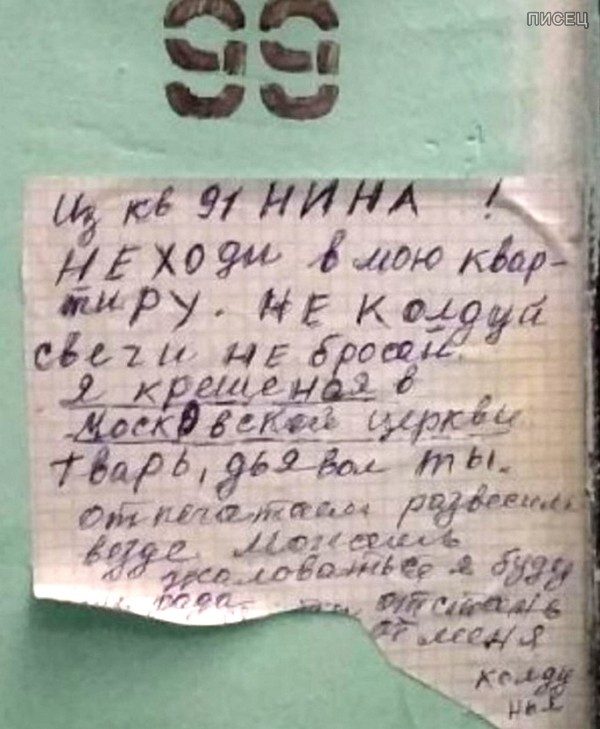 писец
99
Из кв 91 НИНА !
НЕ ХОДИ в мою квар-
тиру. НЕ колдуй
свечи не бросай.
Я крещеная в
московской церкви
тварь, дьявол ты.
отпечатаем развесим
везде Можешь
жаловаться я буду
рада ты отстань
от меня
колду
нья